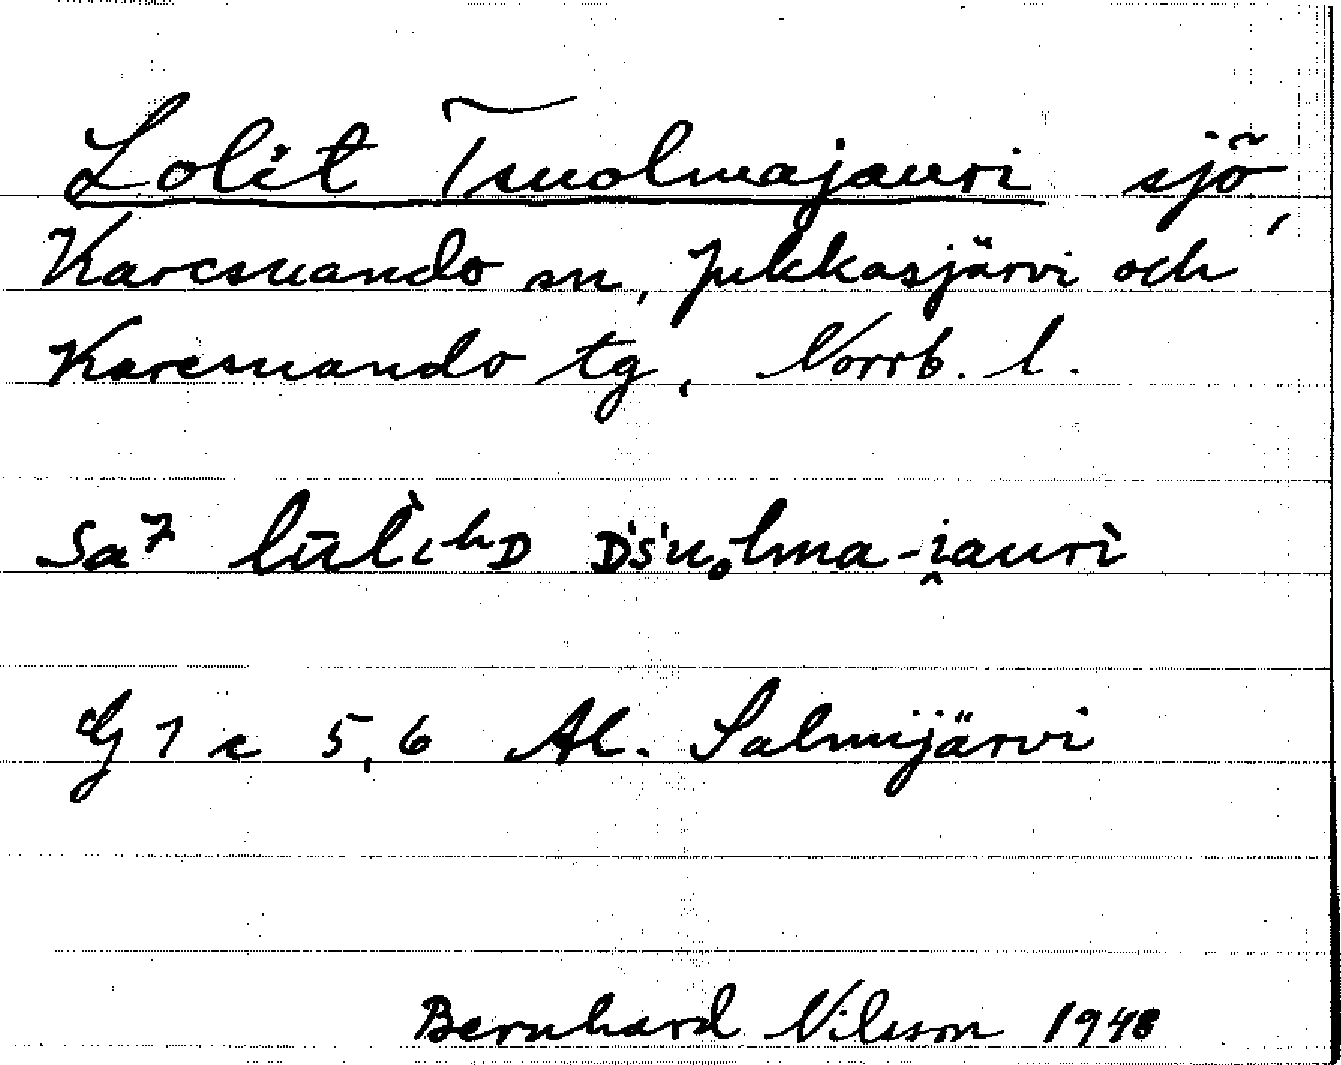 Lolit Tsuolmajauri sjö,
Karesuando sn, Jukkasjärvi och
Karesuando tg, Norrb. l.
Sa7
G 7 c 5,6 Al. Salmijärvi
Bernhard Nilsson 1948